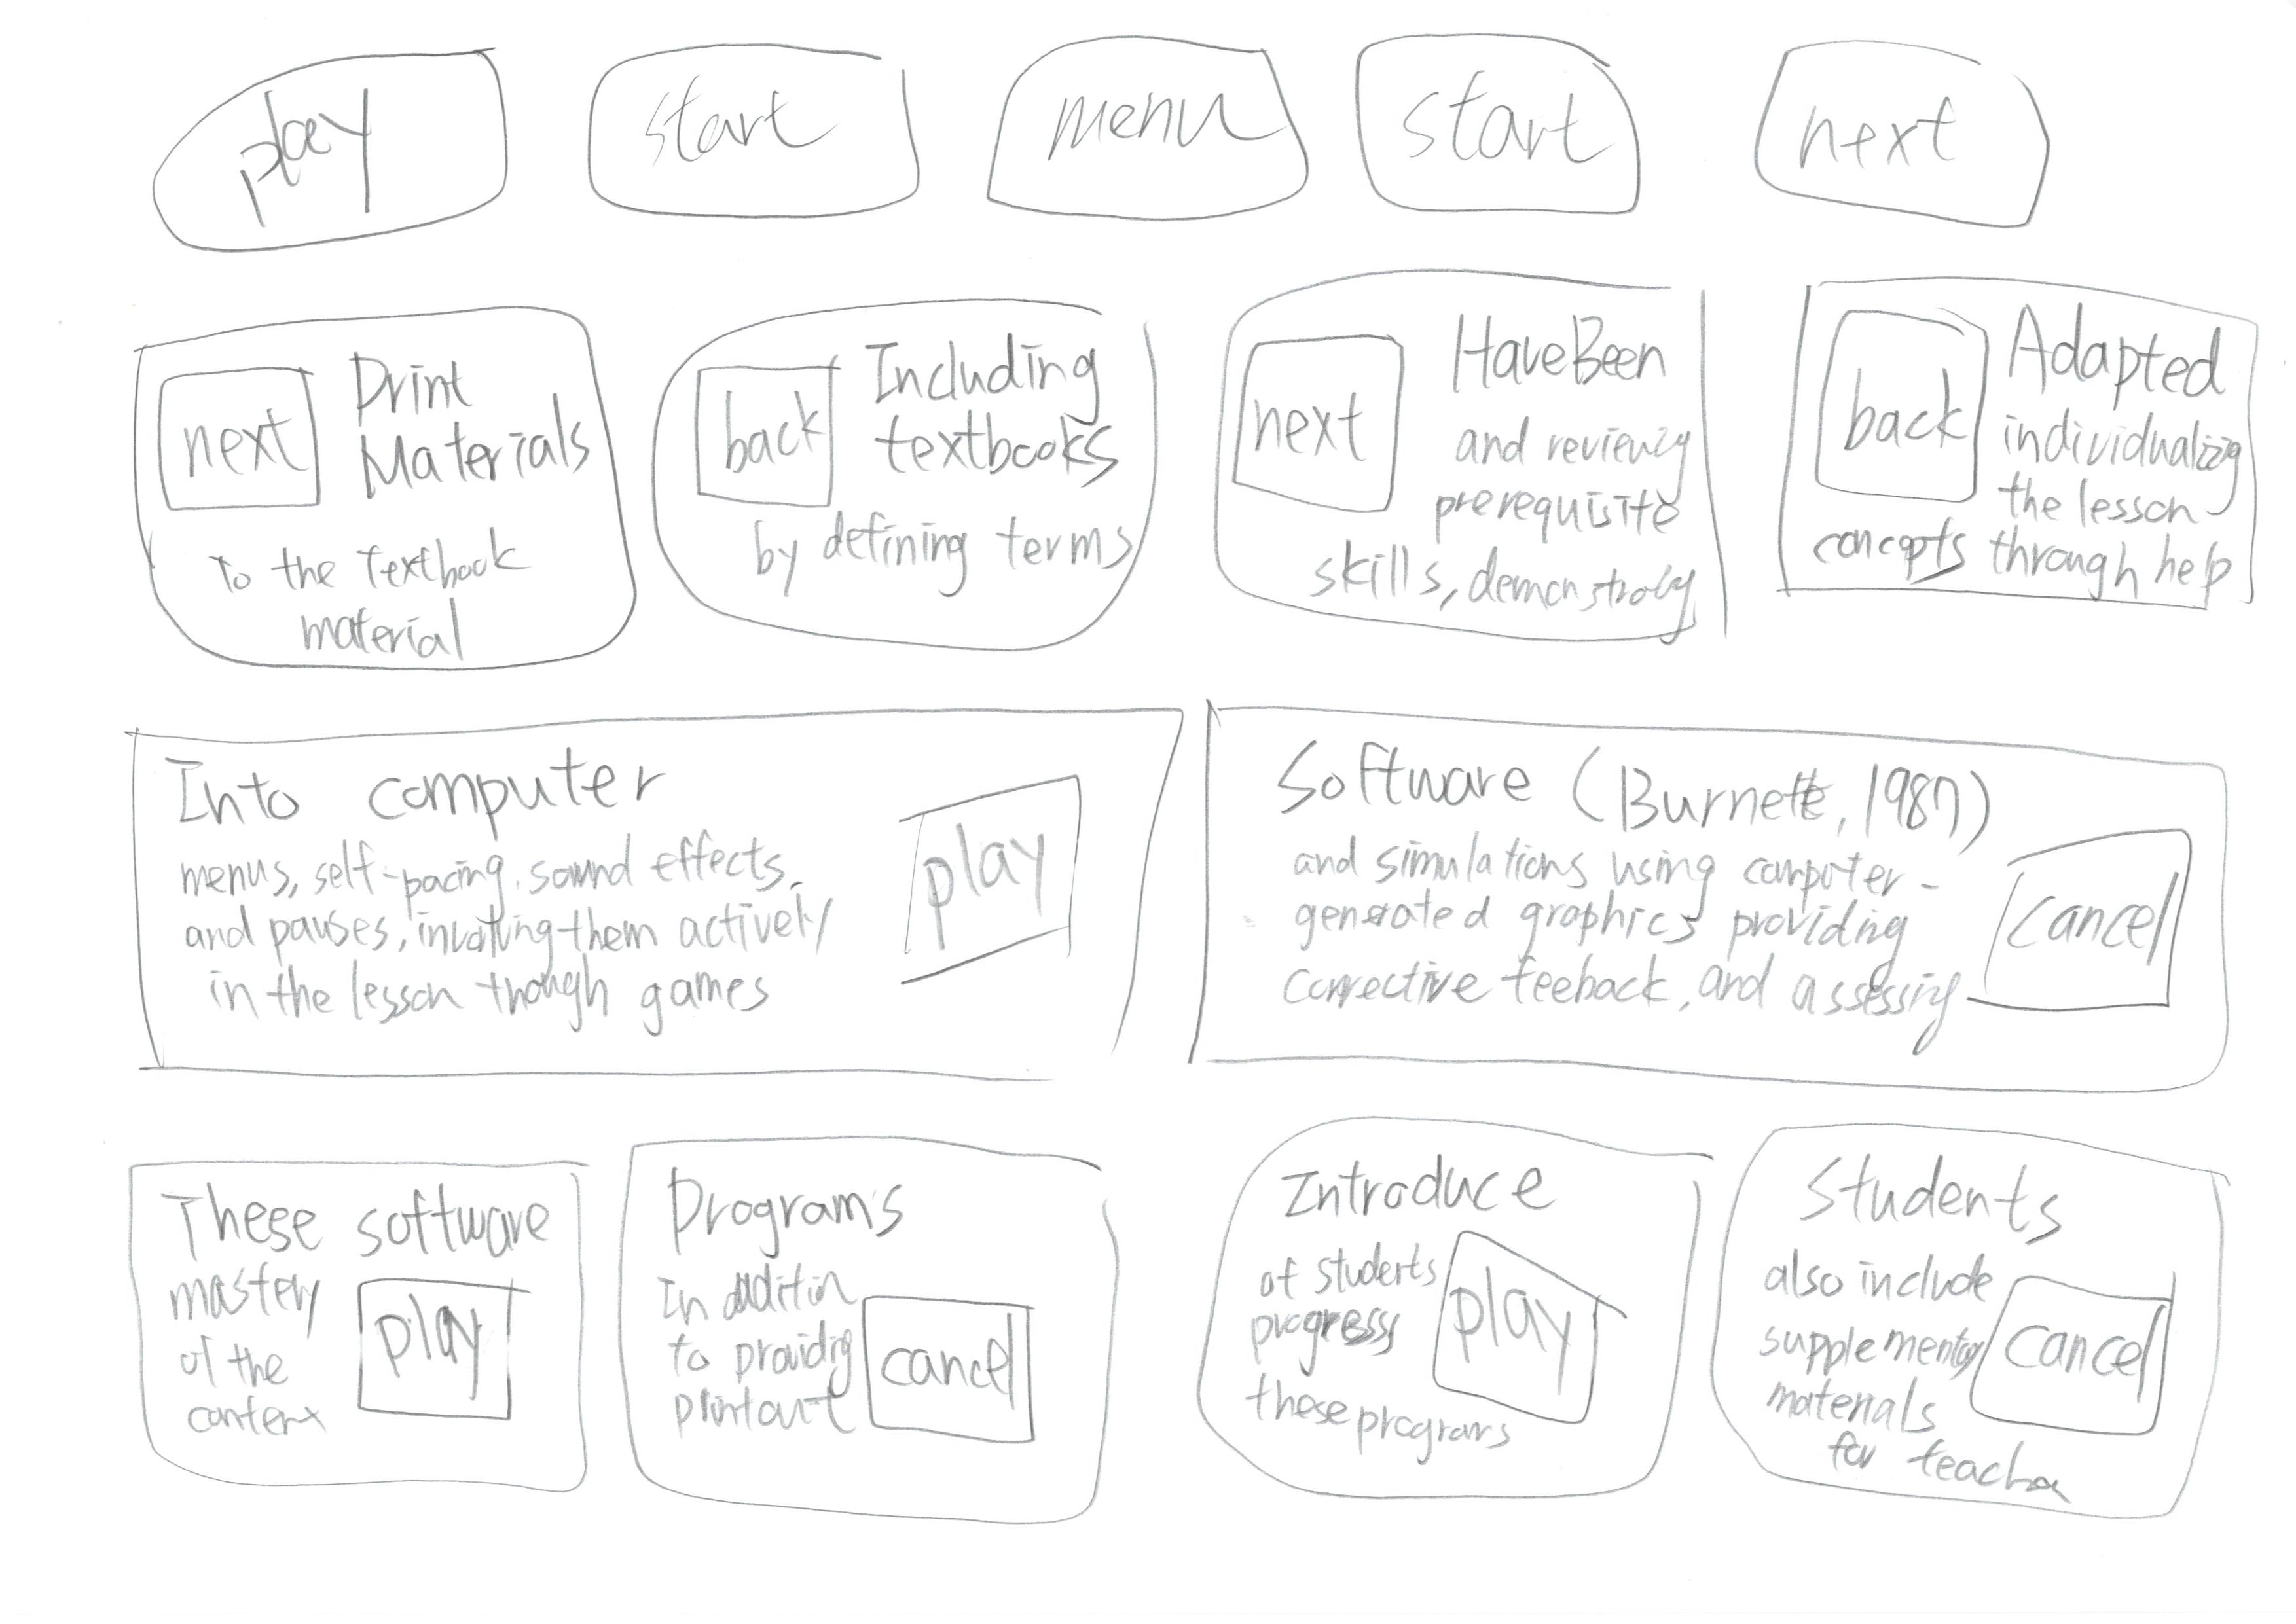 play
start
menu
start
next
next
Print
Materials
To the Textbook
material
back
Including
textbooks
by defining terms
next
HaveBeen
and reviewing
prerequisite
skills, demonstrating
back
Adapted
individualizing
the lesson
concepts through help
Into computer
menus, self-pacing, sound effects,
and pauses, involving them actively
in the lesson though games
play
Software (Burnette, 1987)
and simulations using computer-
generated graphics providing
corrective feeback, and assessing
cancel
These software
mastery
of the
content
play
Programs
In addition
to providing
printout
cancel
Introduce
of students
progress
these programs
play
Students
also include
supplementary
materials
for teacher
cancel